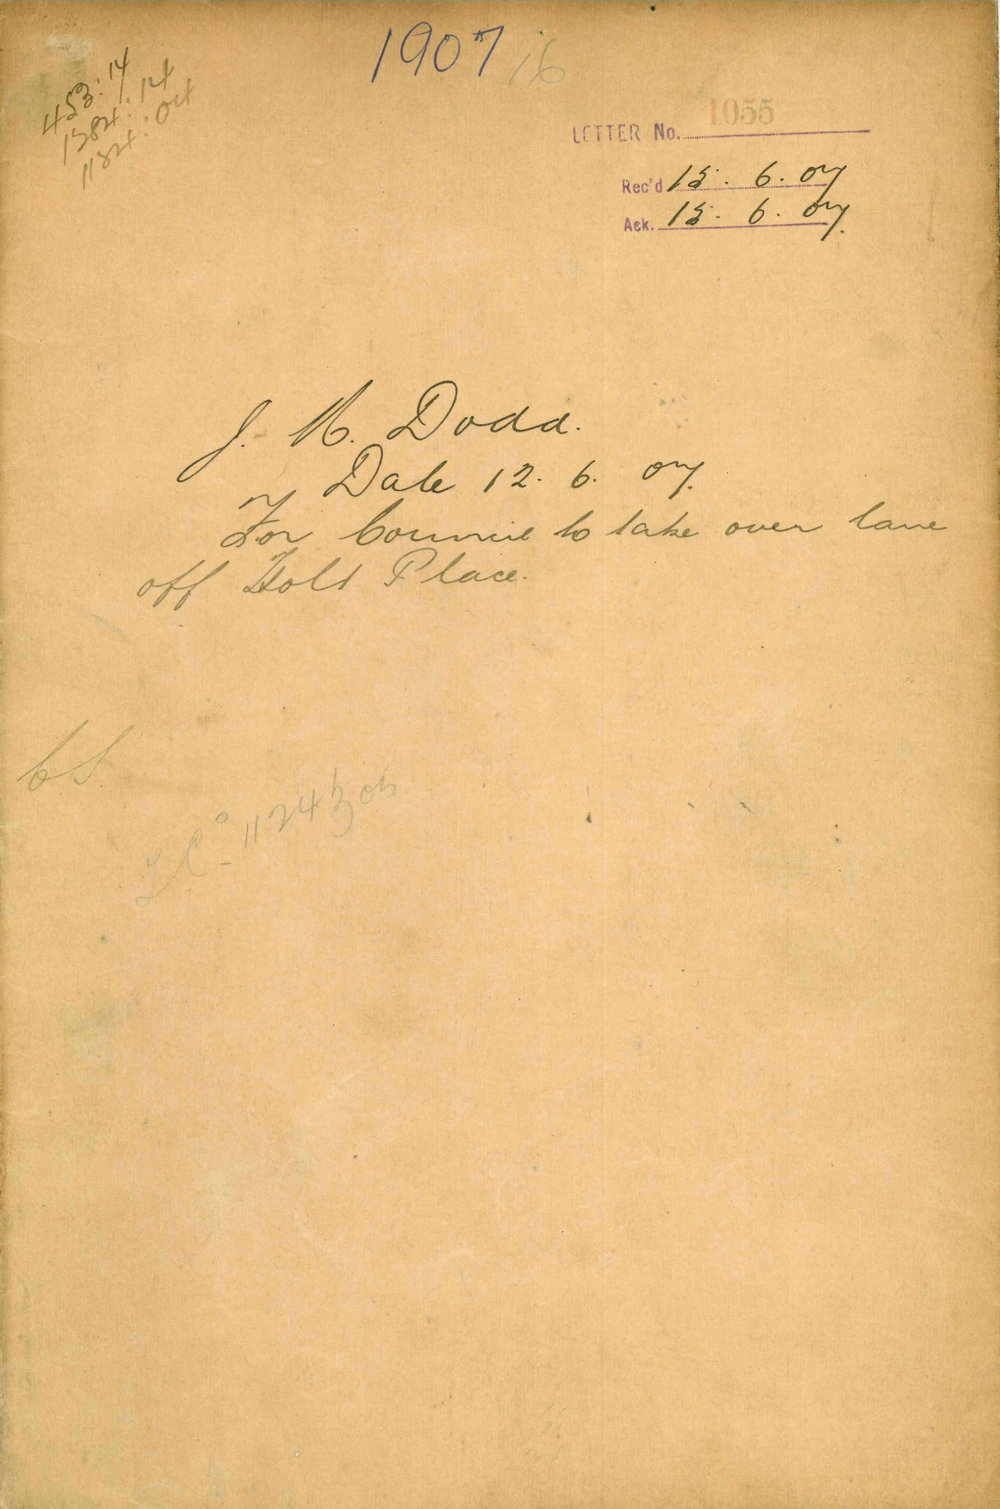 1907 16
453:14
1384:14
1124:04
LETTER No. 1055
Rec'd 15. 6. 07
Ack. 15. 6. 07.
J. M. Dodd.
Date 12. 6. 07.
For Council to take over lane
off Holt Place.
CS